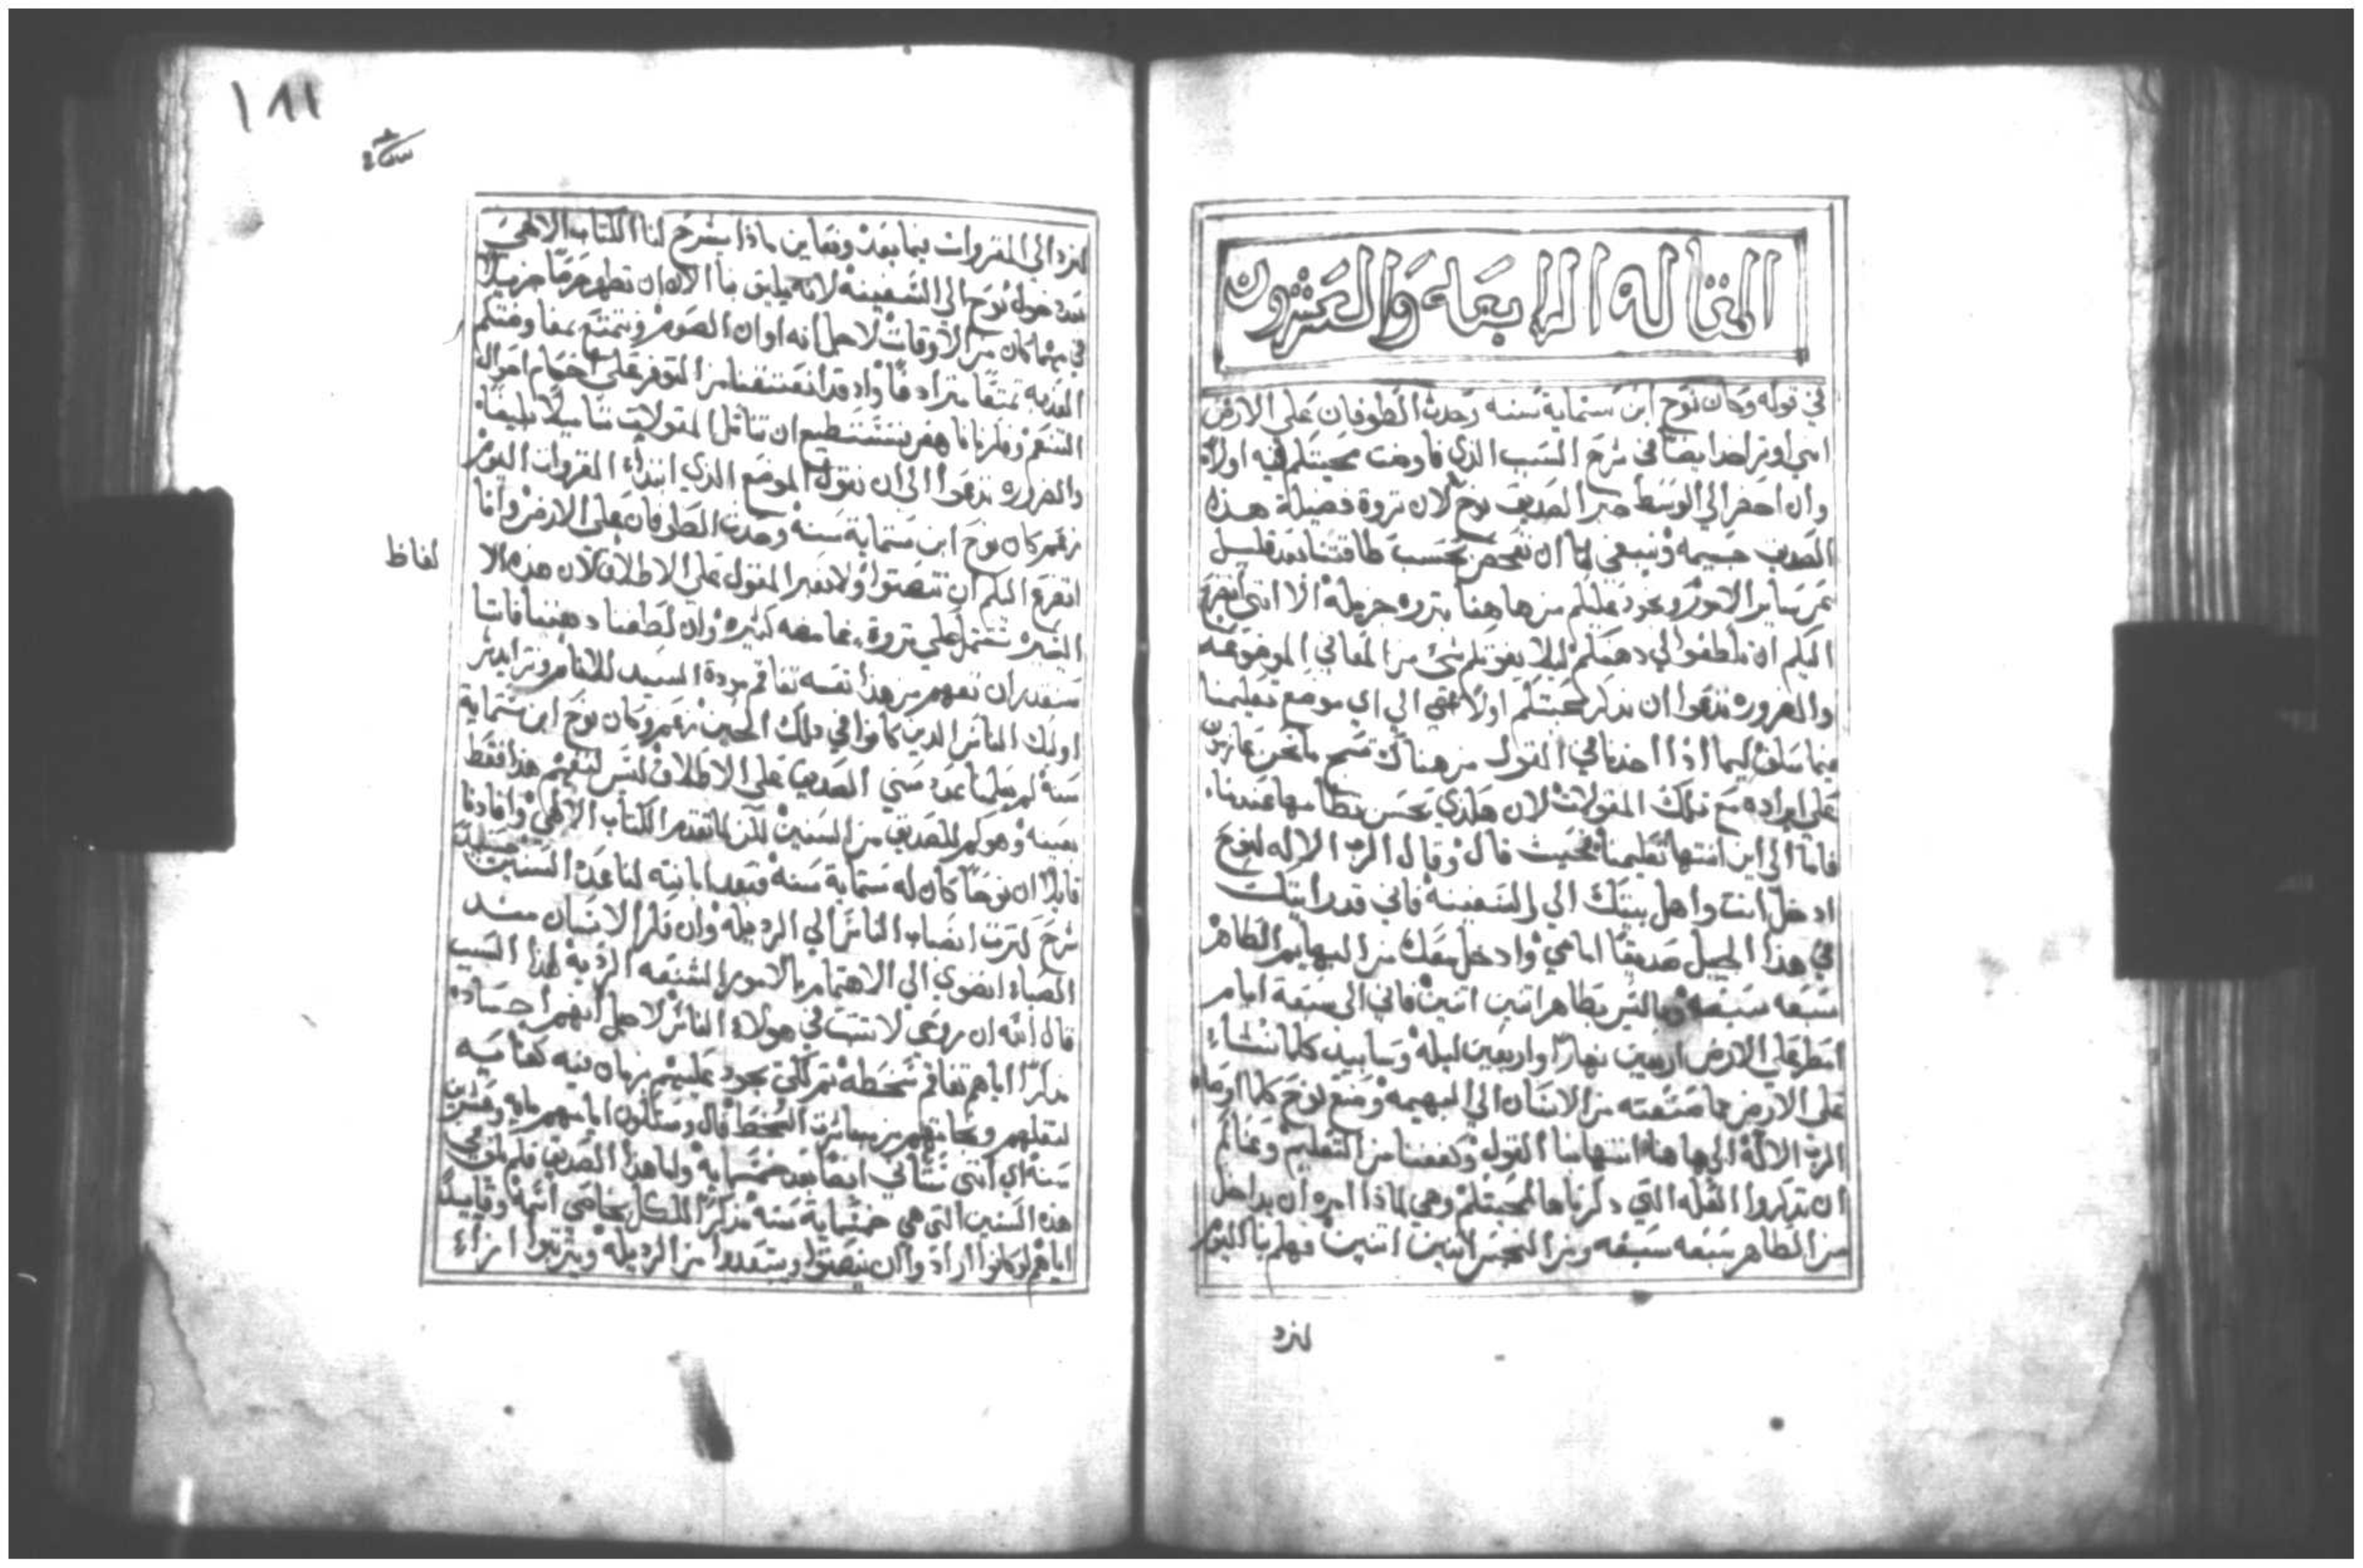 المقاله الرابعه والعشرون
في قوله وكان نوح ابن ستماية سنه وحدث الطوفان على الارض
انني اوثر اخذ ايضا في شرح السبب الذي فاوضت محبتكم فيه اولا
وان احضر الي الوسط خبر الصديق نوح لان ثروة فضيلة هذه
الصديق جسيمه وينبغي لنا ان نفحص بحسب طاقتنا بعد قليل
عن ساير الامور ونجود عليكم من هاهنا بثروه جزيله الا انني اتضرع
اليكم ان تلطفوا لي دهنكم ليلا يفوتكم شي من المعاني الموضوعه
والضروره تدعوا ان نذكر محبتكم اولا متي الي اي موضع تعليمنا
فيما سلف ليما اذا اخدنا في القول من هناك نتسم ما نحن عازمون
على ايراده مع تلك المقولات لان هكذي يحسن نظامها عندنا
فاما الي اين انتها تعليمنا بحيث قال وقال الرب الاله لنوح
ادخل انت واهل بيتك الي السفينه فاني قد رايتك
في هذا الجيل صديقا امامي وادخل معك من البهايم الطاهر
سبعه سبعه وماليس بطاهر اتنين اتنين فاني الى سبعة ايام
امطر علي الارض اربعين نهارا واربعين ليله وسابيد كلما نشاء
على الارض مما صنعته من الانسان الي البهيمه وصنع نوح كلما اوصاه
الرب الاله الي هاهنا انتهامنا القول وكففنا من التعليم وعنالم
ان تدكروا العله التي دكرناها لمحبتكم وهي لماذا امره ان يداخل
من الطاهر سبعه سبعه ومن النجس اتنين اتنين فهلم بنا اليوم
لنرد
١٨١
لنرد الي المقروات فيما بعد ونعاين ماذا يشرح لنا الكتاب الالهي
بعد دخول نوح الي السفينه لانه يليق بنا الان ان نظهر حرصا جزيلا
في مهما كان من الاوقات لاجل انه اوان الصوم ونتمتع بمفاوضتكم
العذبه تمتعا مترادفا واذ قد انعتقنا من التوفر على اهتمام احوال
التنعم وفكرنا ناهض نستطيع ان نتامل المقولات تاملا بليغا
والضروره تدعوا الي ان نقول الموضع الذي ابتداء المقروات اليوم
زعم كان نوح ابن ستماية سنه وحدث الطوفان على الارض وانا
اتضرع اليكم ان تنصتوا ولا نعبر المقول على الاطلاق لان هذه الا
لفاظ
اليسيره تشتمل علي ثروة غامضه كثيره وان لطفنا دهننا فاننا
سنقدر ان نفهم من هذا نفسه تفاقم مودة السيد للانام وتزايد شر
اوليك الناس الذين كانوا في دلك الحين زعم وكان نوح ابن ستماية
سنه لم يعلمنا عدد سني الصديق على الاطلاق ليس لنفهم هذا فقط
بعينه وهو كم للصديق من السنين لكن لما تقدم الكتاب الالهي وافادنا
قايلا ان نوحا كان له خمسماية سنه فبعد ابانته لنا عدد السنين حينيد
شرح كثرت انصباب الناس الي الرديله وان فكر الانسان مند
الصباء انضوي الي الاهتمام بالامور الشنعه الرديه لهذا السبب
قال الله ان روحي لا تثبت في هولاء الناس لاجل انهم اجساده
مذكرا اياهم تفاقم سخطه ثم لكي يجود عليهم بزمان فيه كفاية
لنقلهم ونجاتهم من مباشرة السخط قال وستكون ايامهم مايه وعشرين
سنه اي انني نتاني ايضا بعد خمسمايه ولما هذا الصديق فلم يكف في
هذه السنين التي هي خمسماية سنه مذكرا للكل بخاصي اسمه وقايدا
اياهم لو كانوا ارادوا ان ينصتوا ويبتعدوا من الرديله ويثبتوا ازاء